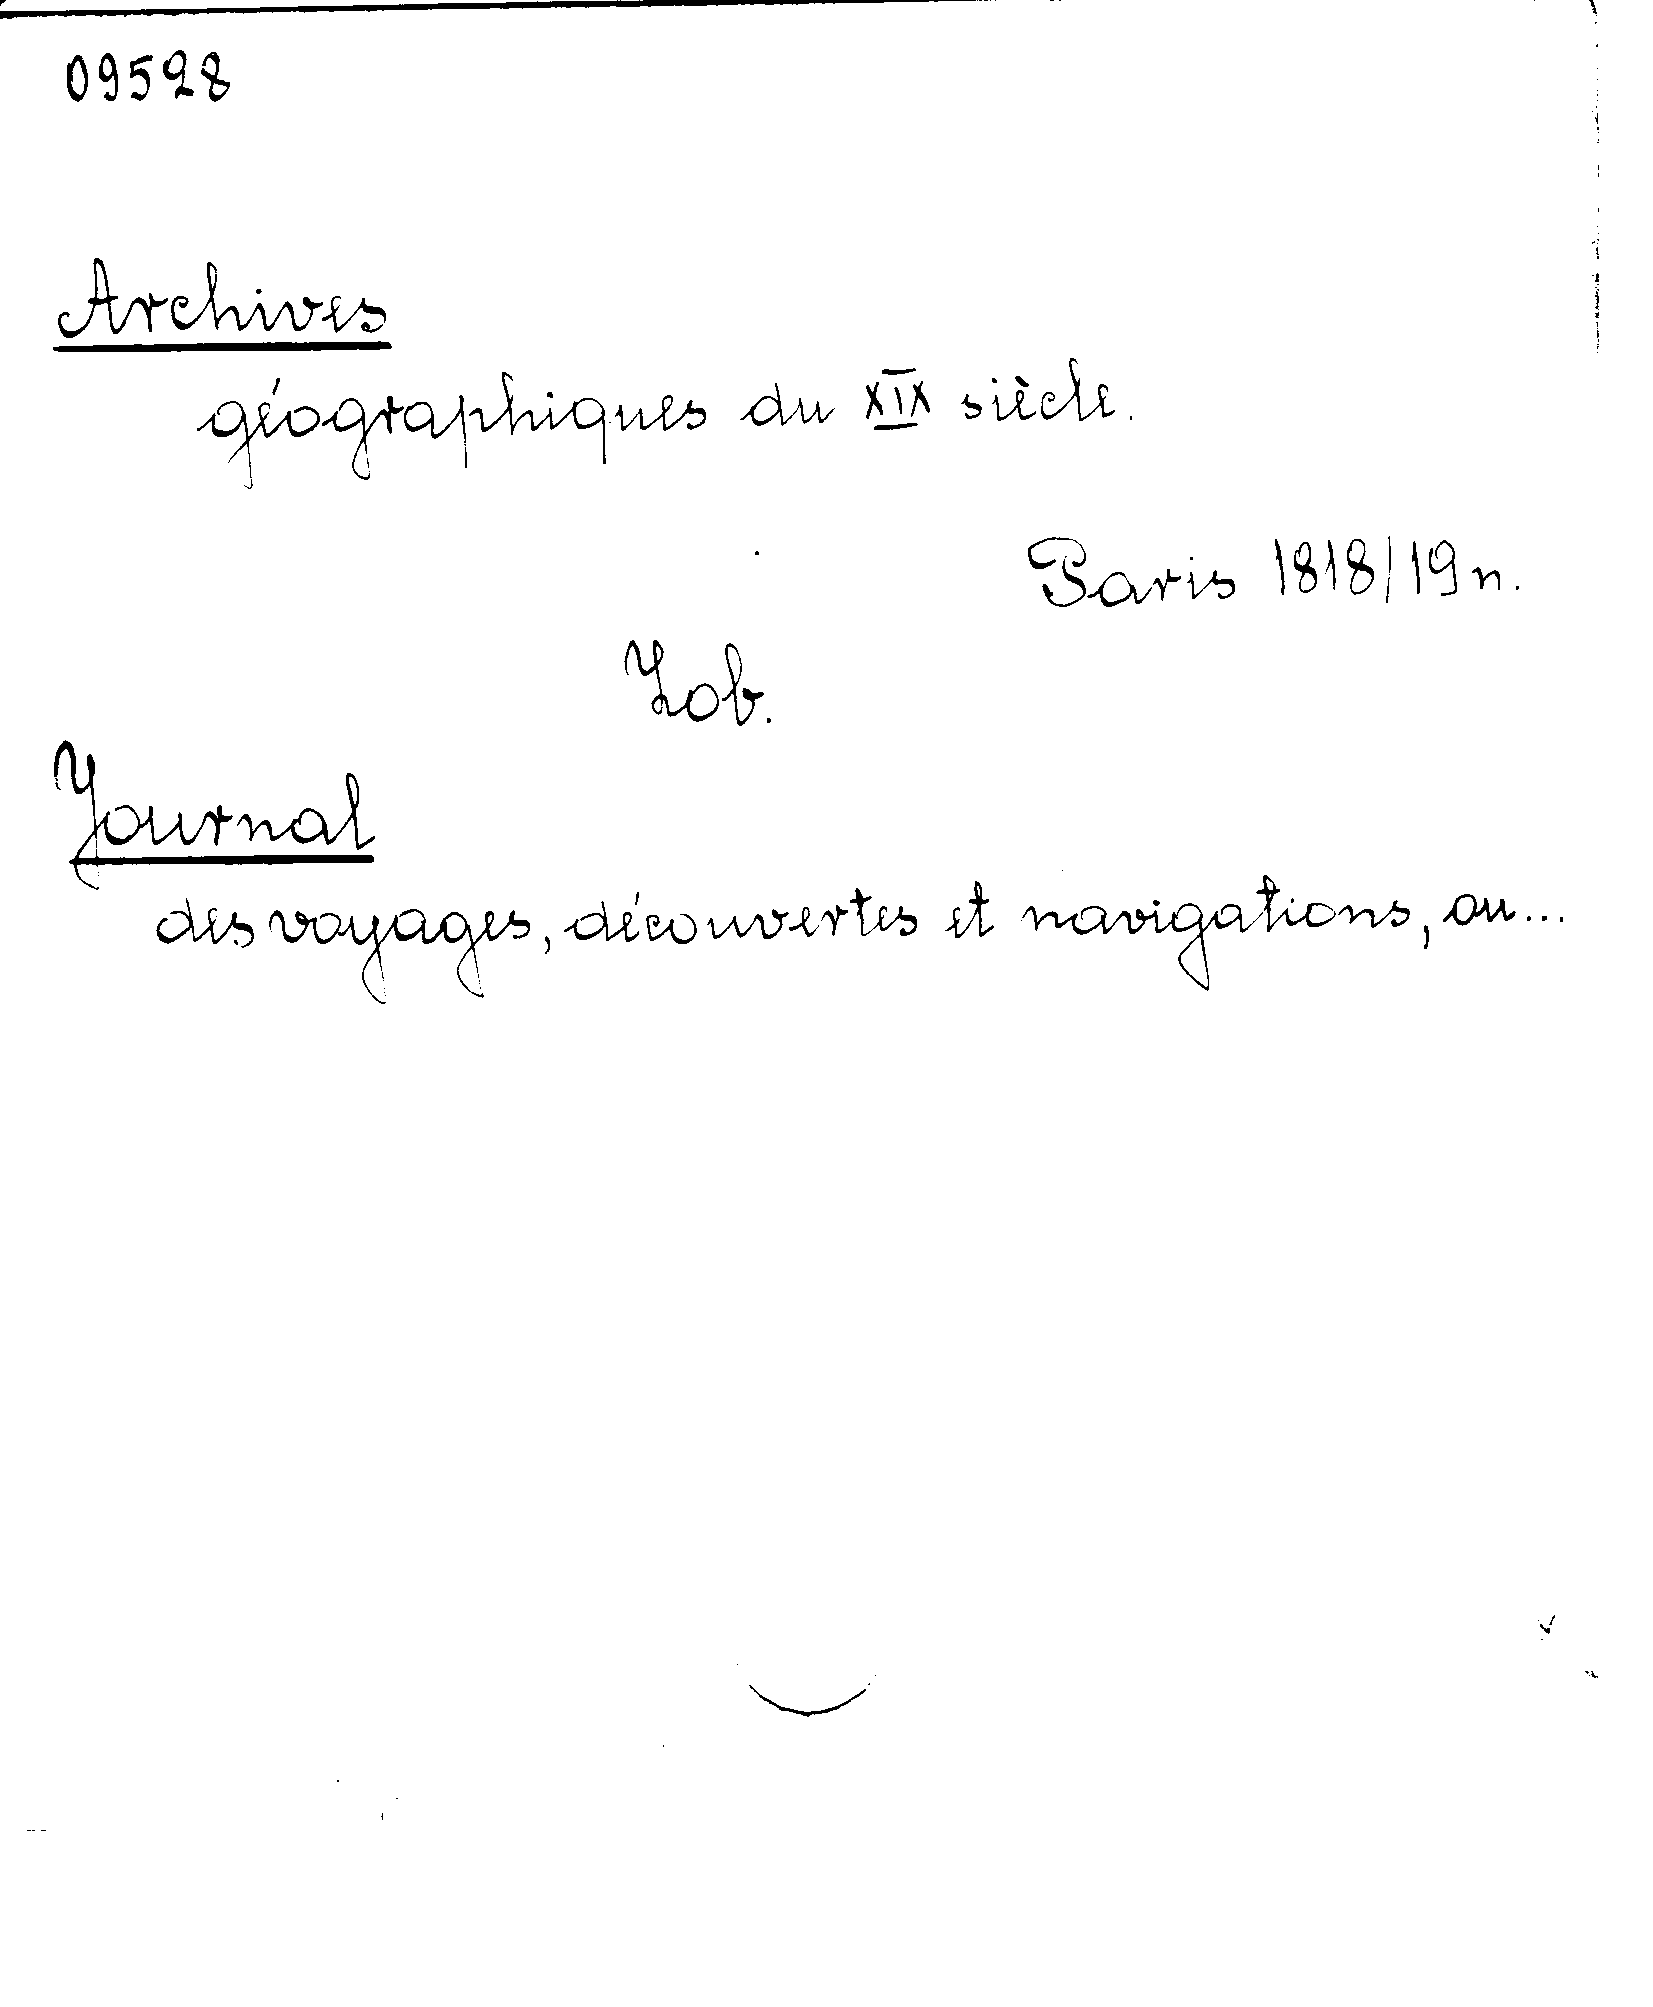 09528
Archives
géographiques du XIX siècle.
Paris 1818/19 n.
Zob.
Journal
des voyages, découvertes et navigations, ou...